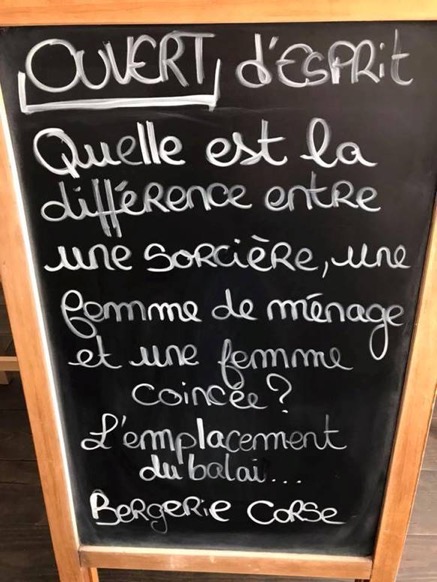 OUVERT d'ESPRit
Quelle est la
différence entre
une SORCIÈRE, une
femme de ménage
et une femme
coincée ?
L'emplacement
du balai...
BERGERIE CORSE